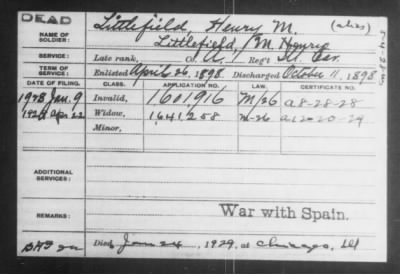 DEAD
NAME OF SOLDIER: Littlefield, Henry M. (alias)
Littlefield, M. Henrie
SERVICE: Late rank, Reg't Ill. Cav.
TERM OF SERVICE: Enlisted April 26, 1898. Discharged October 11, 1898
DATE OF FILING. CLASS. APPLICATION NO. LAW. CERTIFICATE NO.
1928 Jan. 9 Invalid, 1601916 M/26 a 8-28-28
1929 Apr. 22 Widow, 1641258 m-26 a 12-20-29
Minor,
ADDITIONAL SERVICES:
REMARKS: War with Spain.
Died Jan 24, 1929, at Chicago, Ill